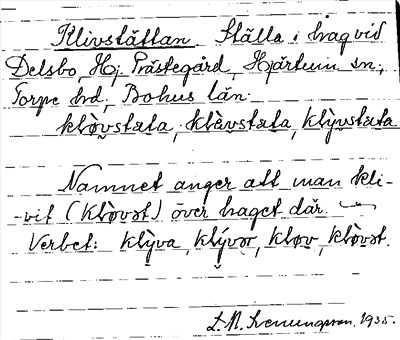 Klivstättan. Ställe i hag vid
Delsbo, Hj. Prästegård, Hjärtum sn.,
Torpe hd, Bohus län.
klòvstata, klàvstata, klỳvstata
Namnet anger att man kli-
-vit (klòvot) över haget där.
Verbet: klỳva, klývor, kløv, klòvot.
1935.